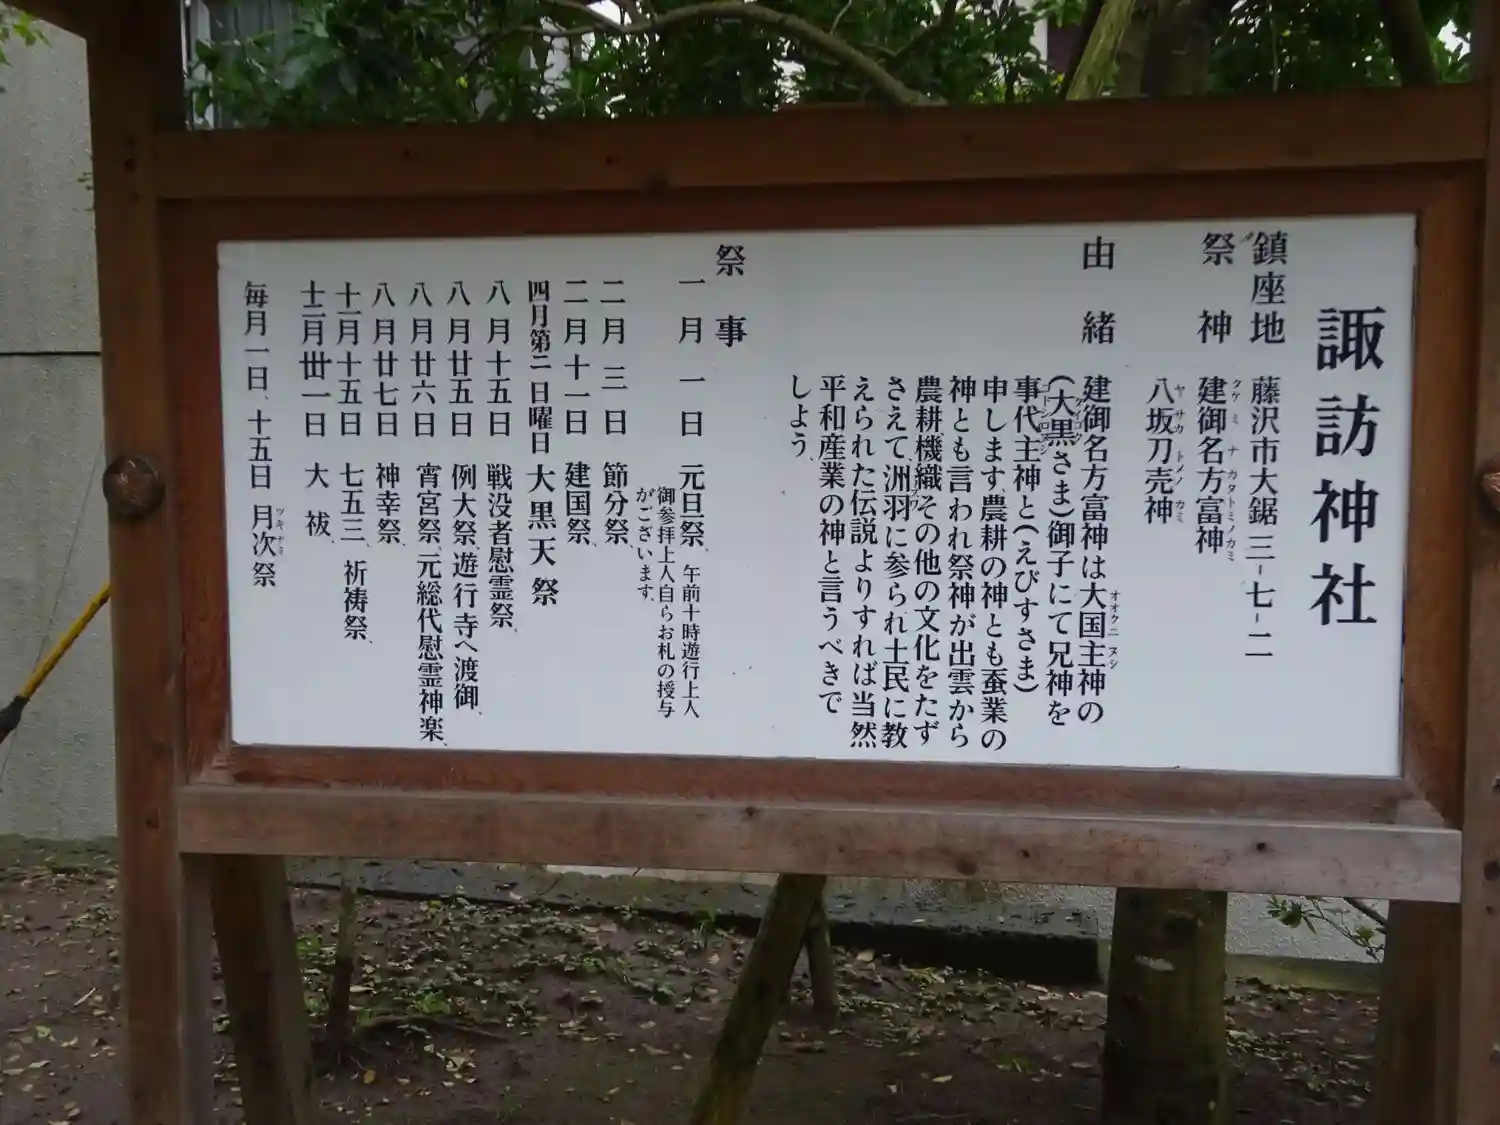 諏訪神社
鎮座地　藤沢市大鋸三-七-二
祭神　建御名方富神
八坂刀売神
由緒　建御名方富神は大国主神の
(大黒さま)御子にて兄神を
事代主神と(えびすさま)
申します、農耕の神とも蚕業の
神とも言われ祭神が出雲から
農耕、機織その他の文化をたず
さえて洲羽に参られ土民に教
えられた伝説よりすれば当然
平和産業の神と言うべきで
しよう、
祭事
一月一日　元旦祭、午前十時遊行上人
御参拝上人自らお札の授与
がございます、
二月三日　節分祭、
二月十一日　建国祭、
四月第二日曜日　大黒天祭
八月十五日　戦没者慰霊祭、
八月廿五日　例大祭、遊行寺へ渡御、
八月廿六日　宵宮祭、元総代慰霊神楽、
八月廿七日　神幸祭、
十一月十五日　七五三、祈祷祭、
十二月卅一日　大祓、
毎月一日、十五日　月次祭